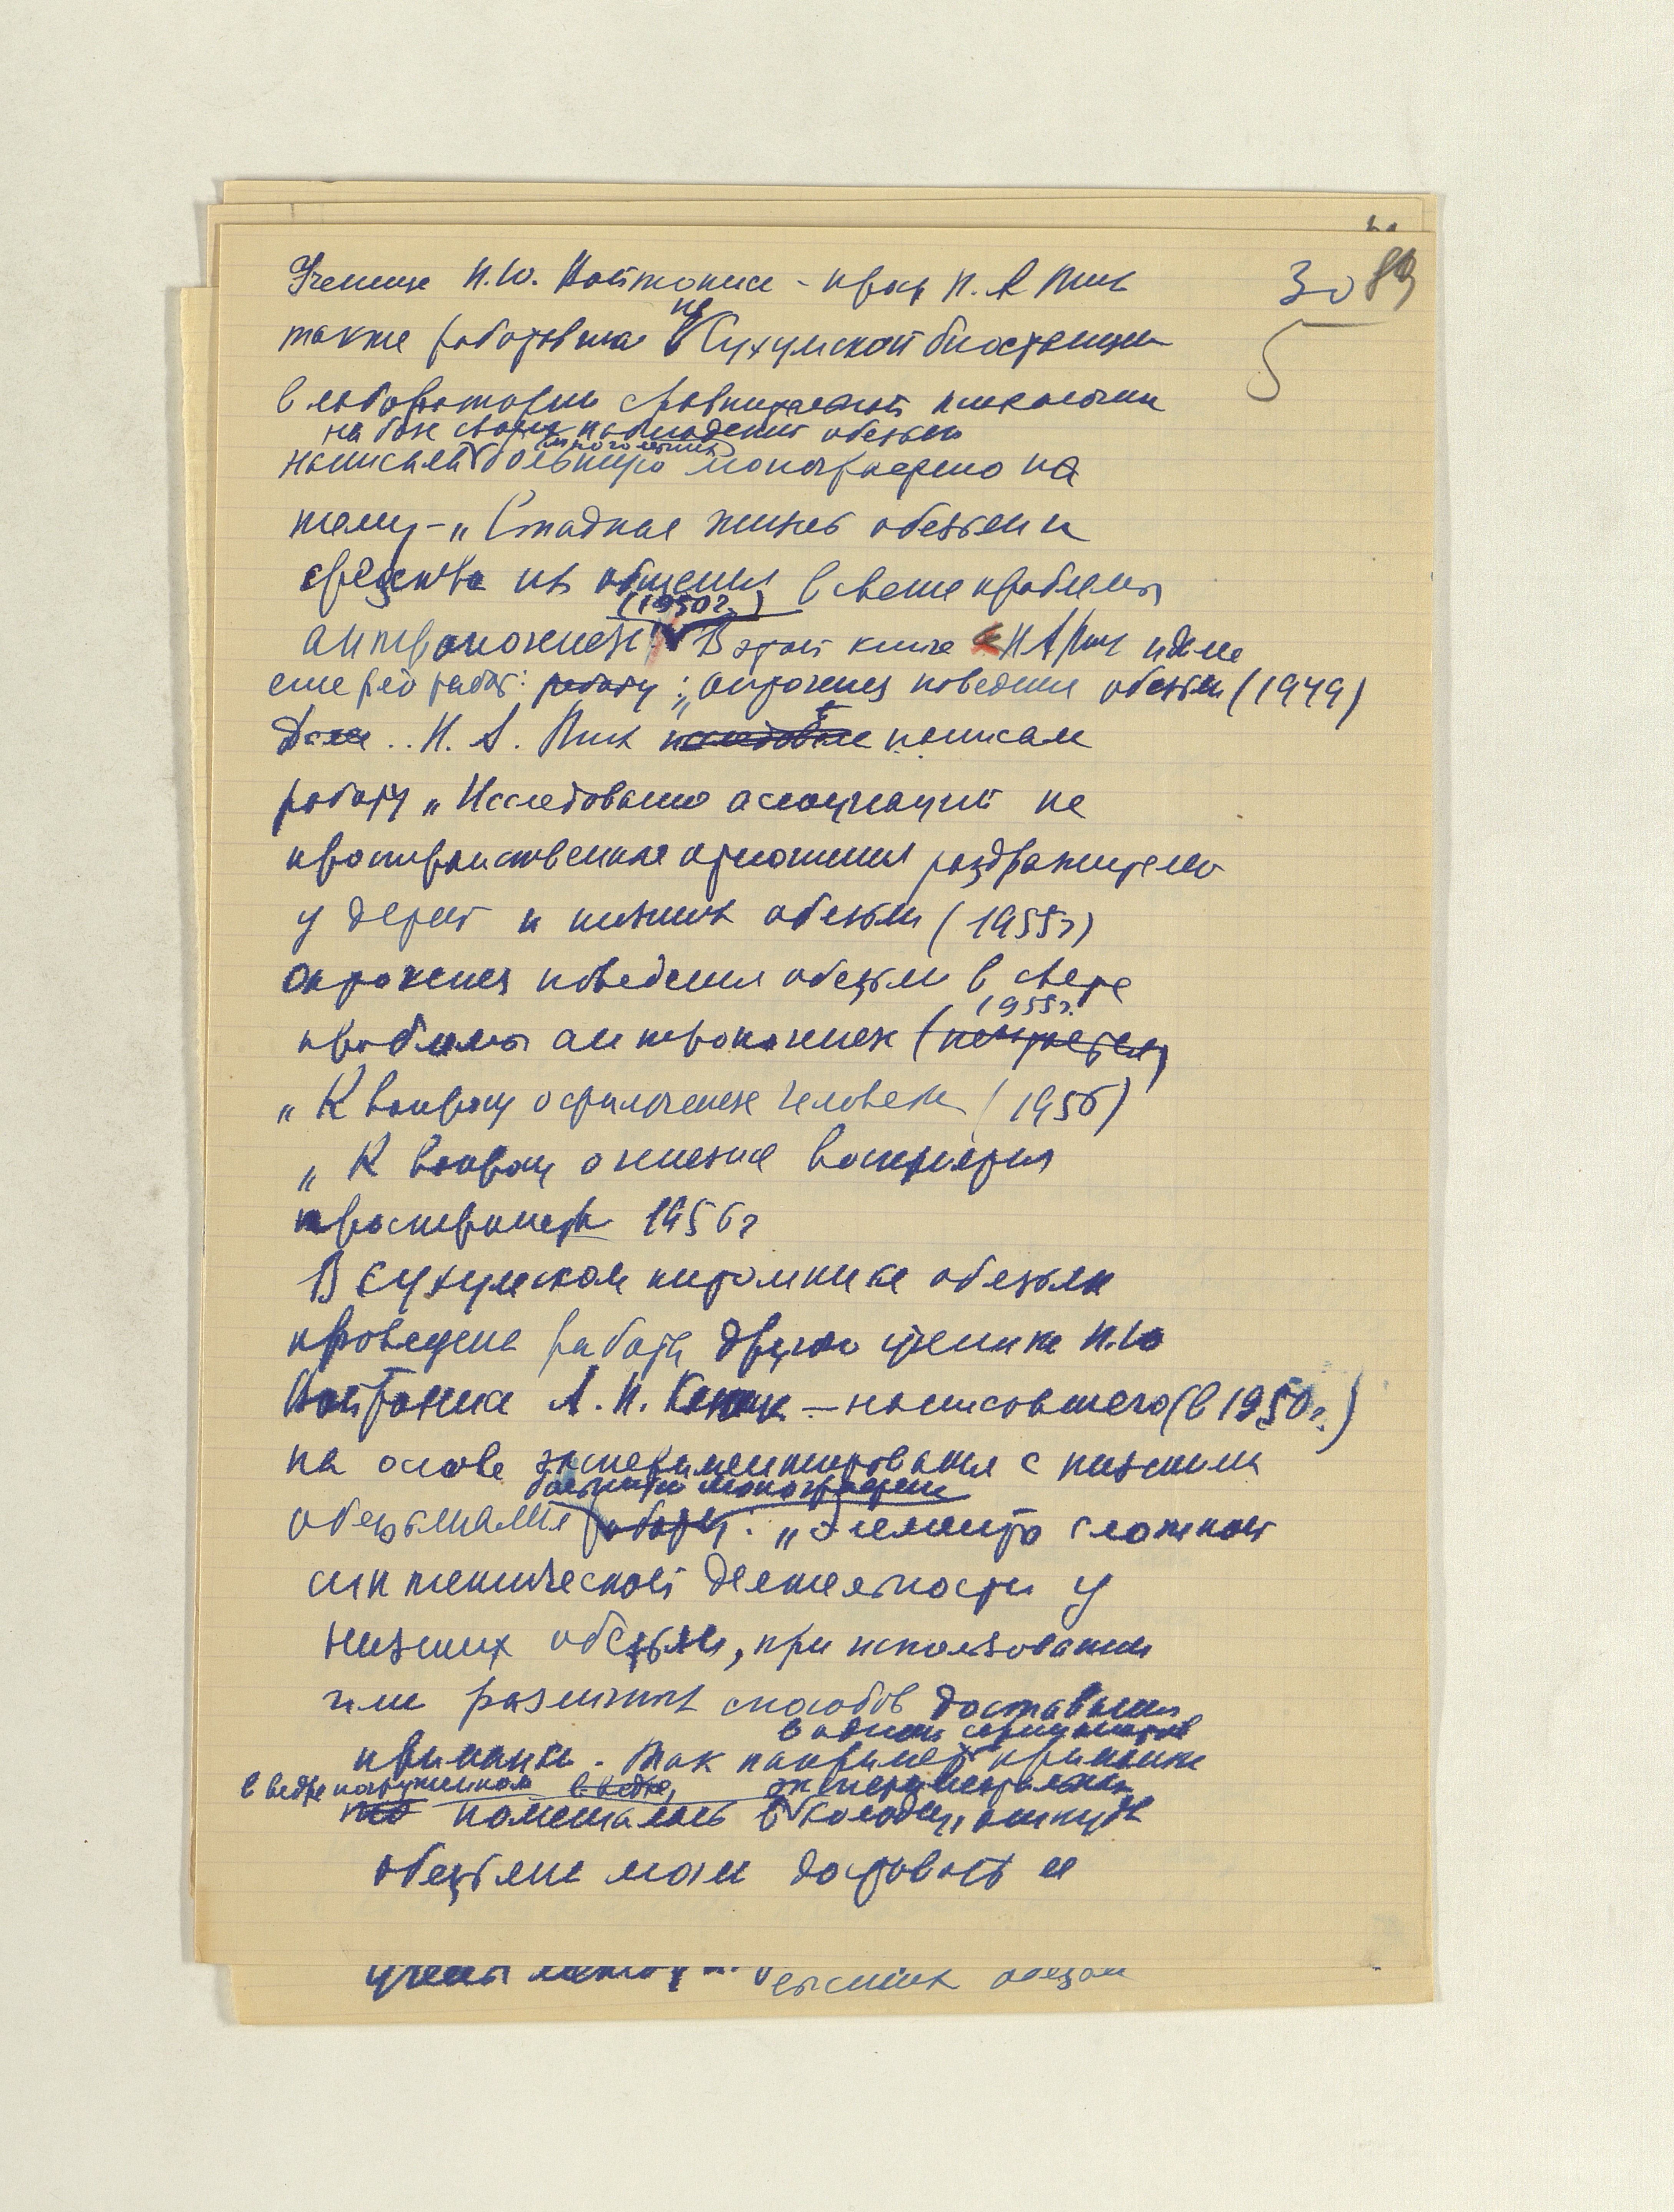 30 89
5
Ученица Н.Ю. Войтониса - проф Н. А Тих
также работавшая на Сухумской биостанции
в лаборатории сравнительной психологии
на базе своих наблюдений обезьян
многолетних
написала большую монографию на
тему - „Стадная жизнь обезьян и
средства их общения в свете проблемы
(1950г.)
антропогенеза". В этой книге Н А Тих
еще ряд работ: работу: „онтогенез поведения обезьян (1949)
Далее .. Н. А. Тих написала
работу „Исследование ассоциаций на
пространственные отношения раздражителей
у детей и низших обезьян (1955г)
Онтогенез поведения обезьян в свете
1955г.
проблемы антропогенеза
„К вопросу о филогенезе человека (1956)
„К вопросу о генезисе восприятия
пространства 1956г
В Сухумском питомнике обезьян
проведена работа другого ученика Н.Ю
Войтониса А. И. Каца - написавшего (в 1950г.)
на основе экспериментирования с низшими
большую монографию
обезьянами работу: „Элементы сложной
синтетической деятельности у
низших обезьян, при использовании
ими различных способов доставания
в одних ситуациях
приманки. Так например приманка
в ведре погруженном в ведре, экспериментальный
помещалась в колодец, откуда
обезьяна могла доставать ее
высших обезьян